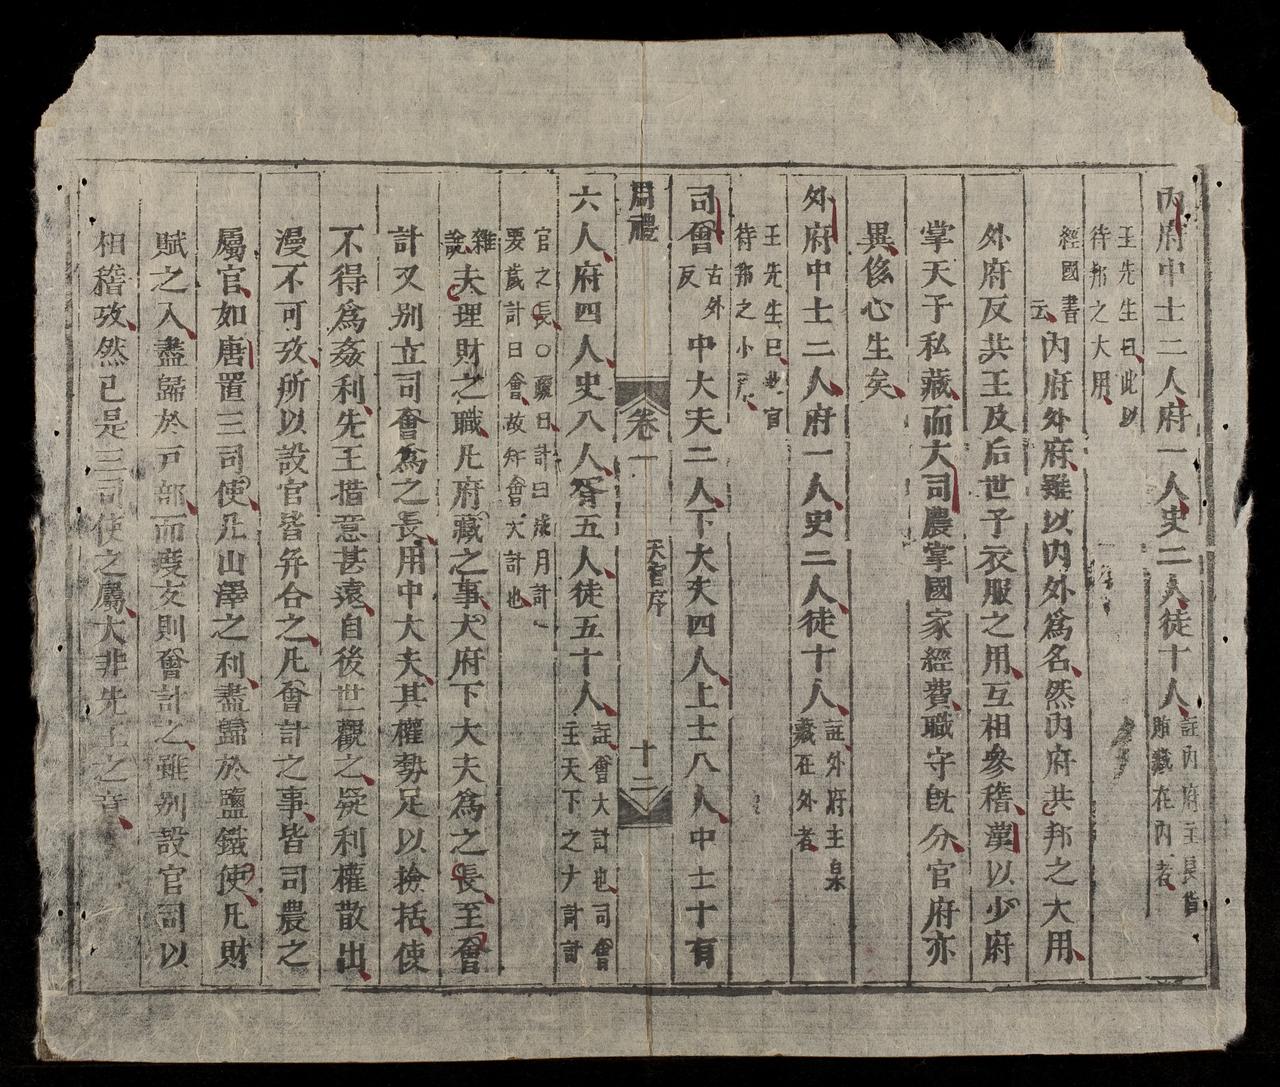 內府中士二人府一人史二人徒十人註內府主良貨賄藏在內者
王先生曰此以待邦之大用
經國書云內府外府雖以內外為名然內府共邦之大用
外府反共王及后世子衣服之用互相參稽漢以少府
掌天子私藏而大司農掌國家經費職守旣分官府亦
異侈心生矣
外府中士二人府一人史二人徒十人註外府主泉藏在外者
王先生曰此官待邦之小用
司會古外反中大夫二人下大夫四人上士八人中士十有
周禮 卷一 天官序 十二
六人府四人史八人胥五人徒五十人註會大計也司會主天下之大計計
官之長○疏曰計曰成月計曰要歲計曰會故年會大計也
雜說夫理財之職凡府藏之事大府下大夫為之長至會
計又別立司會為之長用中大夫其權勢足以撿括使
不得為姦利先王措意甚遠自後世觀之疑利權散出
漫不可攷所以設官皆弁合之凡會計之事皆司農之
屬官如唐置三司使凡山澤之利盡歸於鹽鐵使凡財
賦之入盡歸於戸部而度支則會計之雖別設官司以
相稽攷然已是三司使之屬大非先王之意